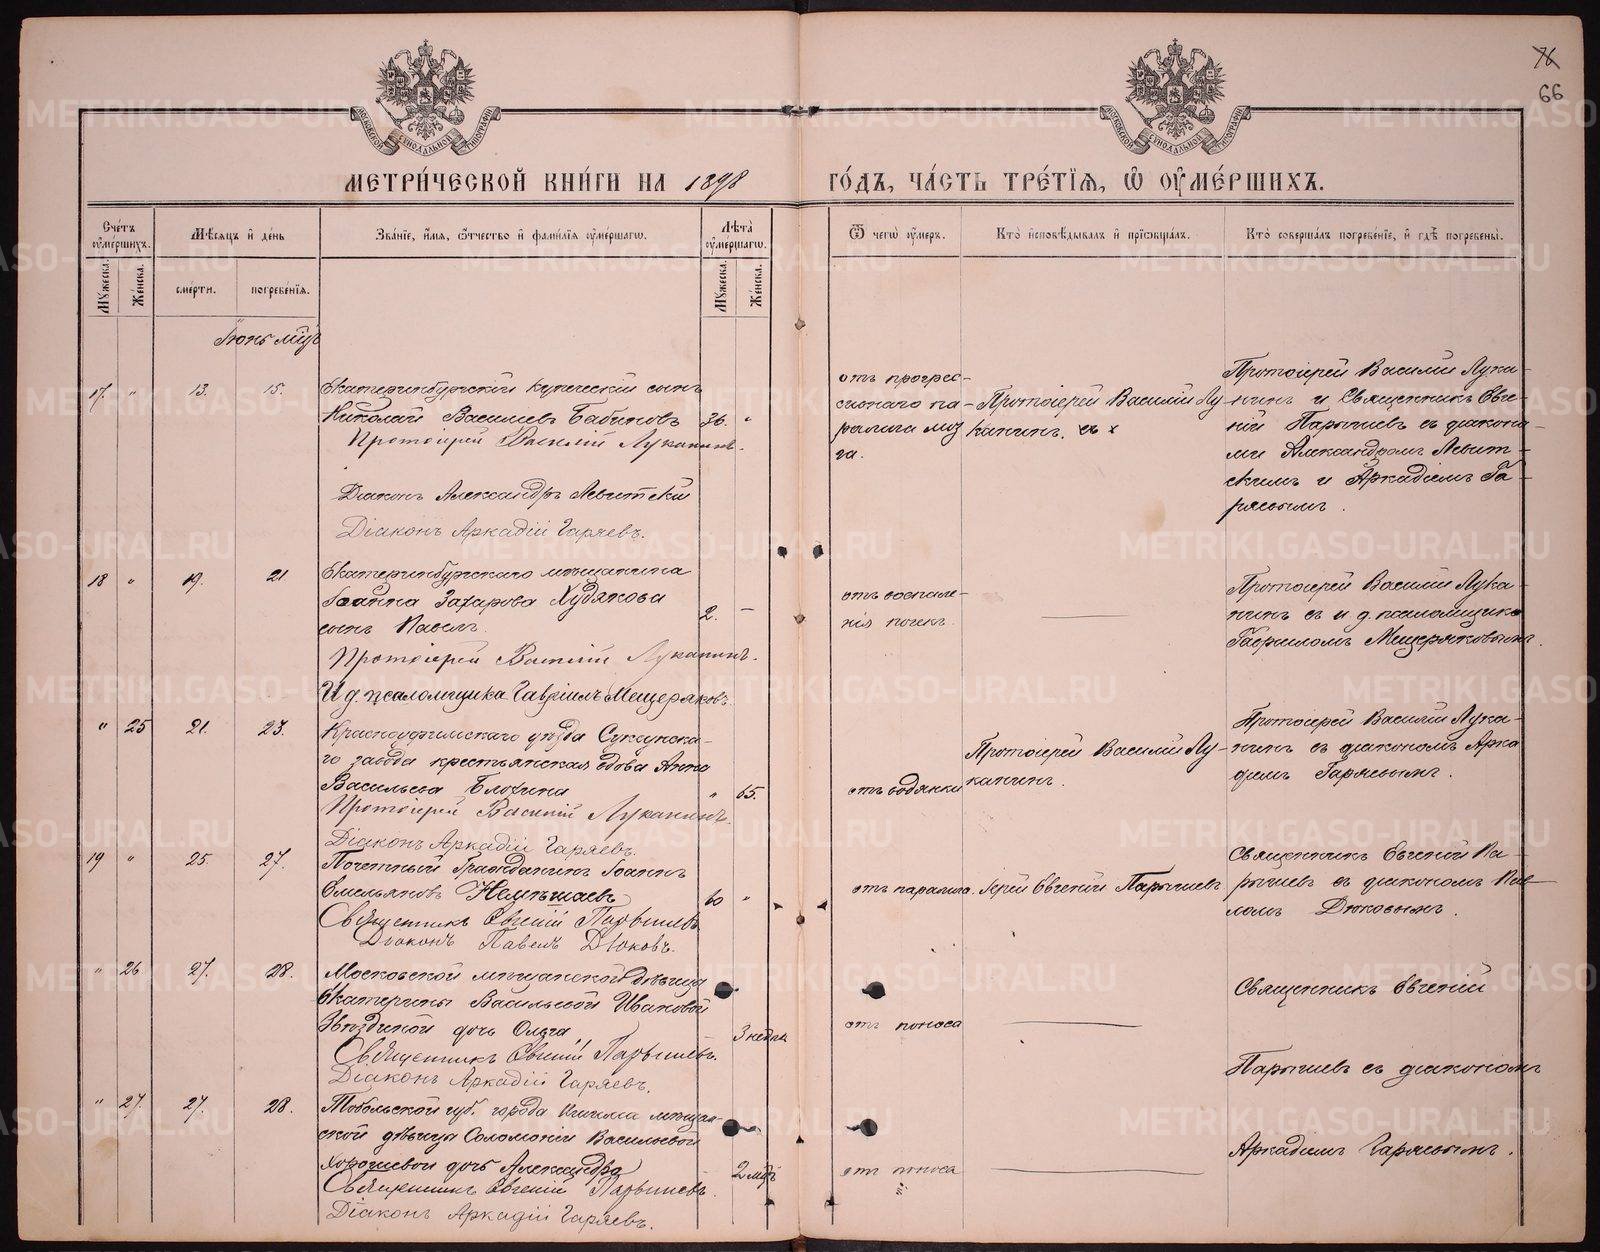 76
66
МОСКОВСКОЙ СѴНОДАЛЬНОЙ ТИПОГРАФІИ
МОСКОВСКОЙ СѴНОДАЛЬНОЙ ТИПОГРАФІИ
МЕТРИ́ЧЕСКОЙ КНИ́ГИ НА 1898 ГО́ДЪ, ЧА́СТЬ ТРЕ́ТЇѦ, Ѡ҆ ОУ҆МЕ́РШИХЪ.
Сче́тъ оу҆ме́ршихъ.
Мꙋ́жеска.
Же́нска.
Мѣ́сѧцъ и҆ де́нь
сме́рти.
погребе́нїѧ.
Зва́нїе, и҆́мѧ, ѻ҆́тчество и҆ фами́лїѧ оу҆ме́ршагѡ.
Лѣ́та оу҆ме́ршагѡ.
Мꙋ́жеска.
Же́нска.
Ѿ чегѡ̀ оу҆́меръ.
Кто̀ и҆сповѣ́дывалъ и҆ прїѡбща́лъ.
Кто̀ соверша́лъ погребе́нїе, и҆ гдѣ̀ погребены̀.
Іюнь мѣц
17. " 13. 15.
Екатеринбургскій купеческій сынъ
Николай Васильевъ Бабиновъ 36. "
Протоіерей Василій Луканинъ.
Діаконъ Александръ Левитскій
Діаконъ Аркадій Гаряевъ.
отъ прогрес-
сивнаго па-
ралича моз
га.
Протоіерей Василій Лу
канинъ.
Протоіерей Василій Лука-
нинъ и Священникъ Евге-
ній Парышевъ съ діакона-
ми Александромъ Левит-
скимъ и Аркадіемъ Га-
ряевымъ.
18 " 19. 21
Екатеринбургскаго мѣщанина
Іоанна Захарова Худякова
сынъ Павелъ. 2. –
Протоіерей Василій Луканинъ.
И д. псаломщика Гавріилъ Мещеряковъ.
отъ воспале-
нія почекъ.
Протоіерей Василій Лука-
нинъ съ и д. псаломщика
Гавріиломъ Мещеряковымъ.
" 25 21. 23.
Красноуфимскаго уѣзда Суксунска-
го завода крестьянская вдова Анна
Васильева Блохина " 65.
Протоіерей Василій Луканинъ.
Діаконъ Аркадій Гаряевъ.
отъ водянки
Протоіерей Василій Лу-
канинъ.
Протоіерей Василій Лука-
нинъ съ діакономъ Арка
діемъ Гаряевымъ.
19 " 25. 27.
Почетный Гражданинъ Іоаннъ
Емельяновъ Немѣшаевъ 60 "
Священникъ Евгеній Парышевъ.
Діаконъ Павелъ Дюковъ.
отъ паралича.
Іерей Евгеній Парышевъ
Священникъ Евгеній Па-
рышевъ съ діакономъ Пав-
ломъ Дюковымъ.
" 26 27. 28.
Московской мѣщанской дѣвицы
Екатерины Васильевой Ивановой
Звѣздиной дочь Ольга 3 недѣли
Священникъ Евгеній Парышевъ.
Діаконъ Аркадій Гаряевъ.
отъ поноса
Священникъ Евгеній
Парышевъ съ діакономъ
Аркадіемъ Гаряевымъ.
" 27. 27. 28.
Тобольской губ. города Ишима мѣщан-
ской дѣвицы Соломоніи Васильевой
Хорошевой дочь Александра 2 мѣс
Священникъ Евгеній Парышевъ.
Діаконъ Аркадій Гаряевъ.
отъ поноса
METRIKI.GASO-URAL.RU